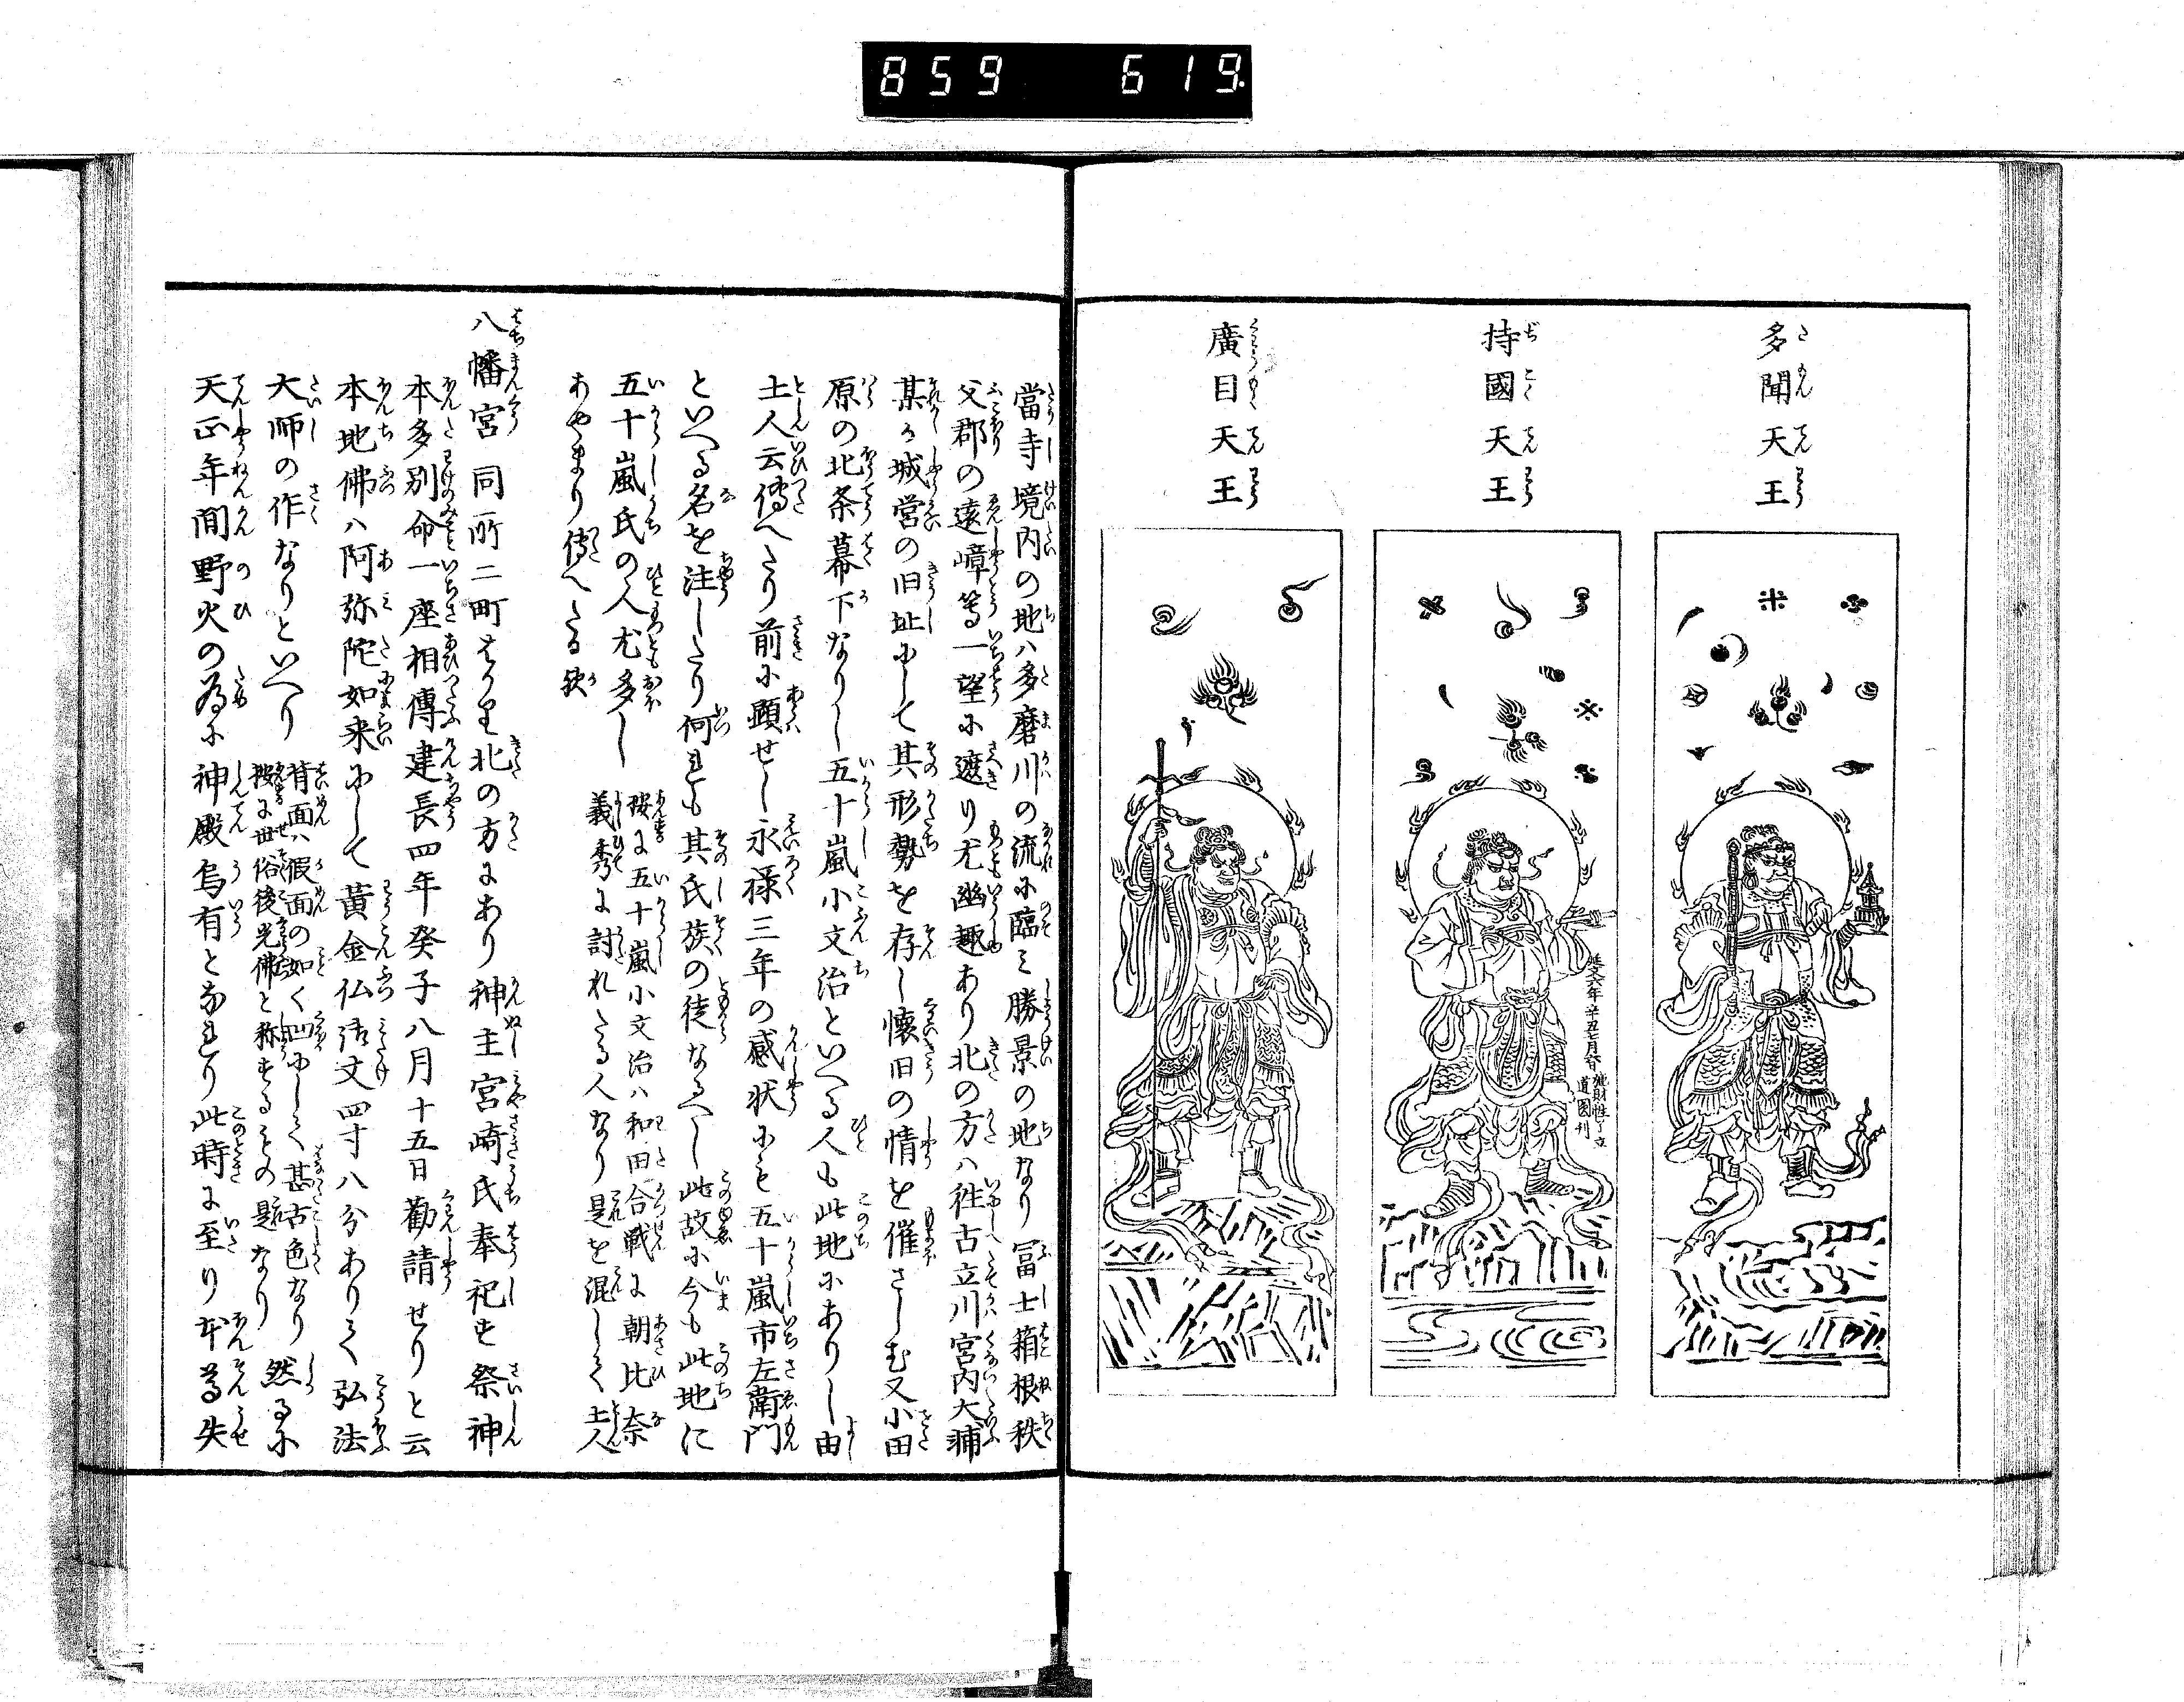 859 619.
多聞天王
持國天王
延文六年辛丑七月六日
道圓刊
廣目天王
當寺境内の地ハ多磨川の流に臨ミ勝景の地なり冨士箱根秩
父郡の遠嶂等一望に遮り尤幽趣あり北の方ハ往古立川宮内大輔
某の城営の旧址にして其形勢を存し懐旧の情を催さしむ又小田
原の北条幕下なりし五十嵐小文治といへる人も此地にありし由
土人云傳へたり前に顕せし永禄三年の感状にも五十嵐市左衛門
といへる名を注したり何れも其氏族の徒なるへし此故に今も此地に
五十嵐氏の人尤多し
按に五十嵐小文治ハ和田合戦に朝比奈
義秀に討れたる人なり是を混して土人
あやまり傳へたる歟
八幡宮 同所二町はかり北の方にあり神主宮崎氏奉祀す祭神
本多別命一座相傳建長四年癸子八月十五日勸請せりと云
本地佛ハ阿弥陀如来にして黄金仏御丈四寸八分ありて弘法
大師の作なりといへり
背面ハ假面の如く凹にして甚古色なり
按に世俗後光佛と称するもの是なり
然るに
天正年間野火の為に神殿烏有となれり此時に至り本尊失